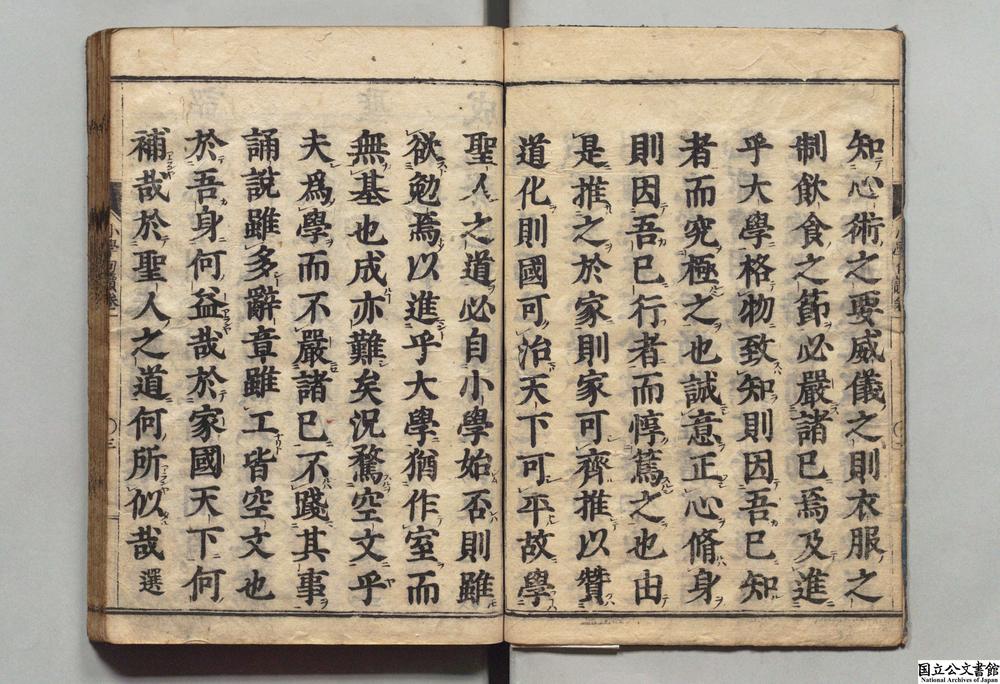 知心術之要威儀之則衣服之
制飲食之節必嚴諸己焉及進
乎大學格物致知則因吾已知
者而究極之也誠意正心脩身
則因吾已行者而惇篤之也由
是推之於家則家可齊推以贊
道化則國可治天下可平故學
聖人之道必自小學始否則雖
欲勉焉以進乎大學猶作室而
無基也成亦難矣況騖空文乎
夫爲學而不嚴諸己不踐其事
誦說雖多辭章雖工皆空文也
於吾身何益哉於家國天下何
補哉於聖人之道何所似哉選
国立公文書館
National Archives of Japan